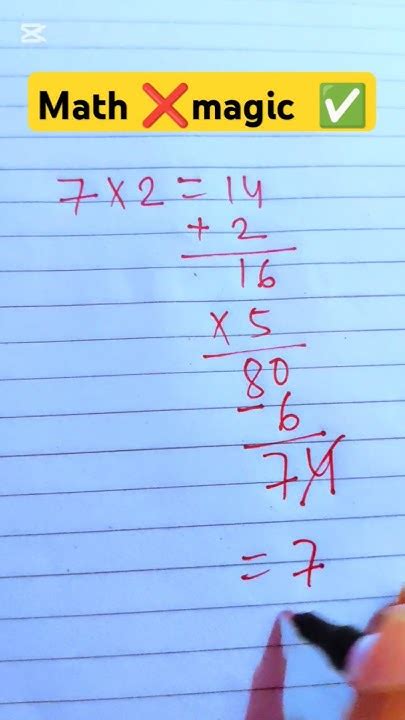 Math ❌magic ✅
7 × 2 = 14
+ 2
16
× 5
80
- 6
74
= 7